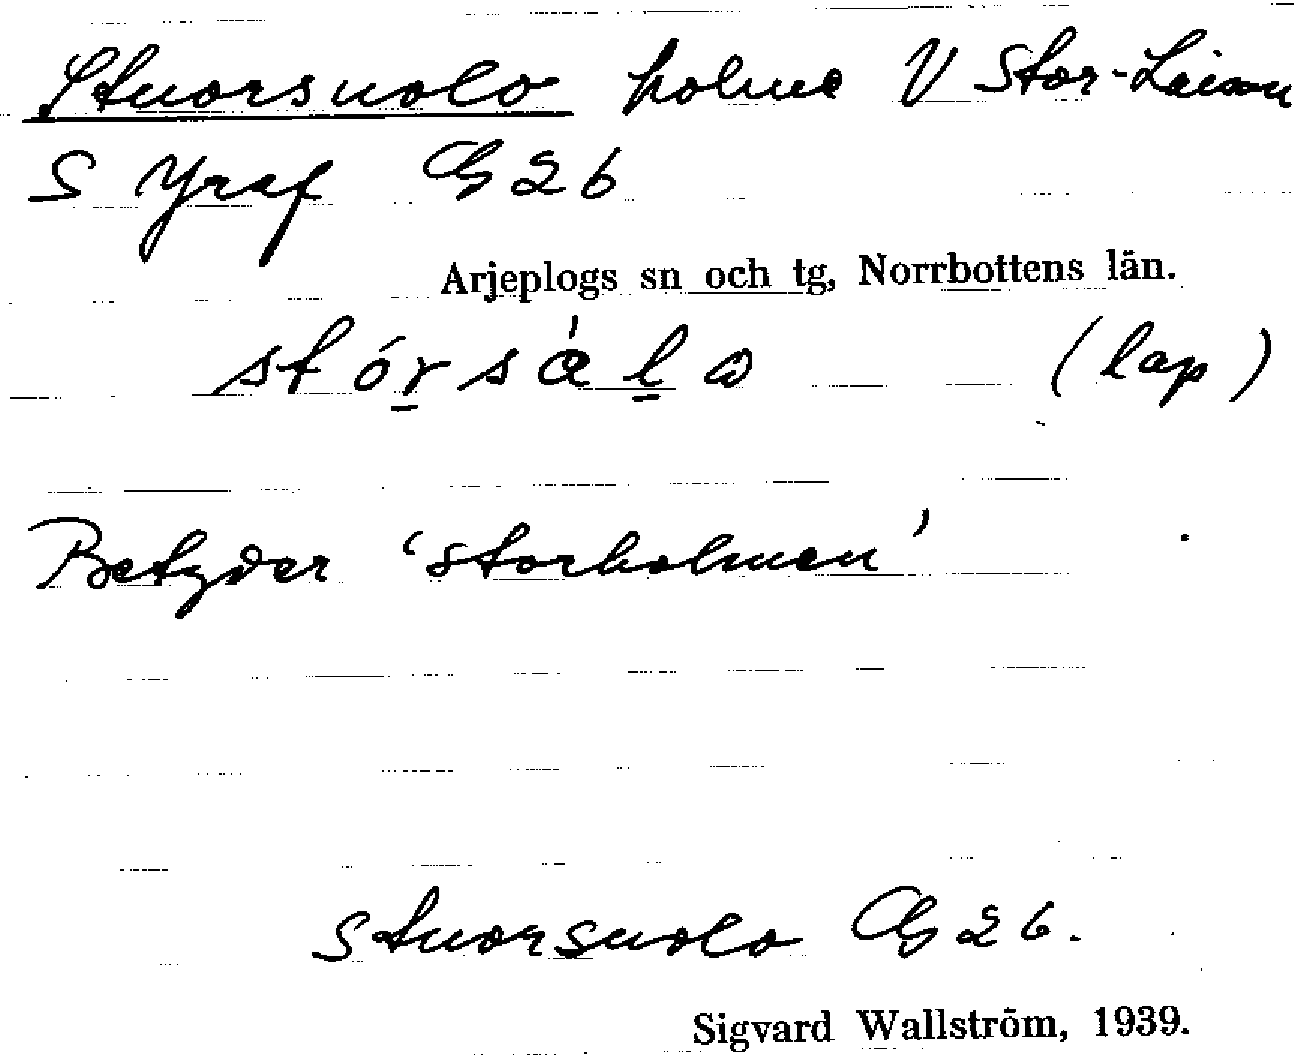 Stuorsuolo holme V Stor-Laisan
S Yraf G 26
Arjeplogs sn och tg, Norrbottens län.
stórsálɷ (lap)
Betyder 'storholmen'
Stuorsuolo G 26.
Sigvard Wallström, 1939.